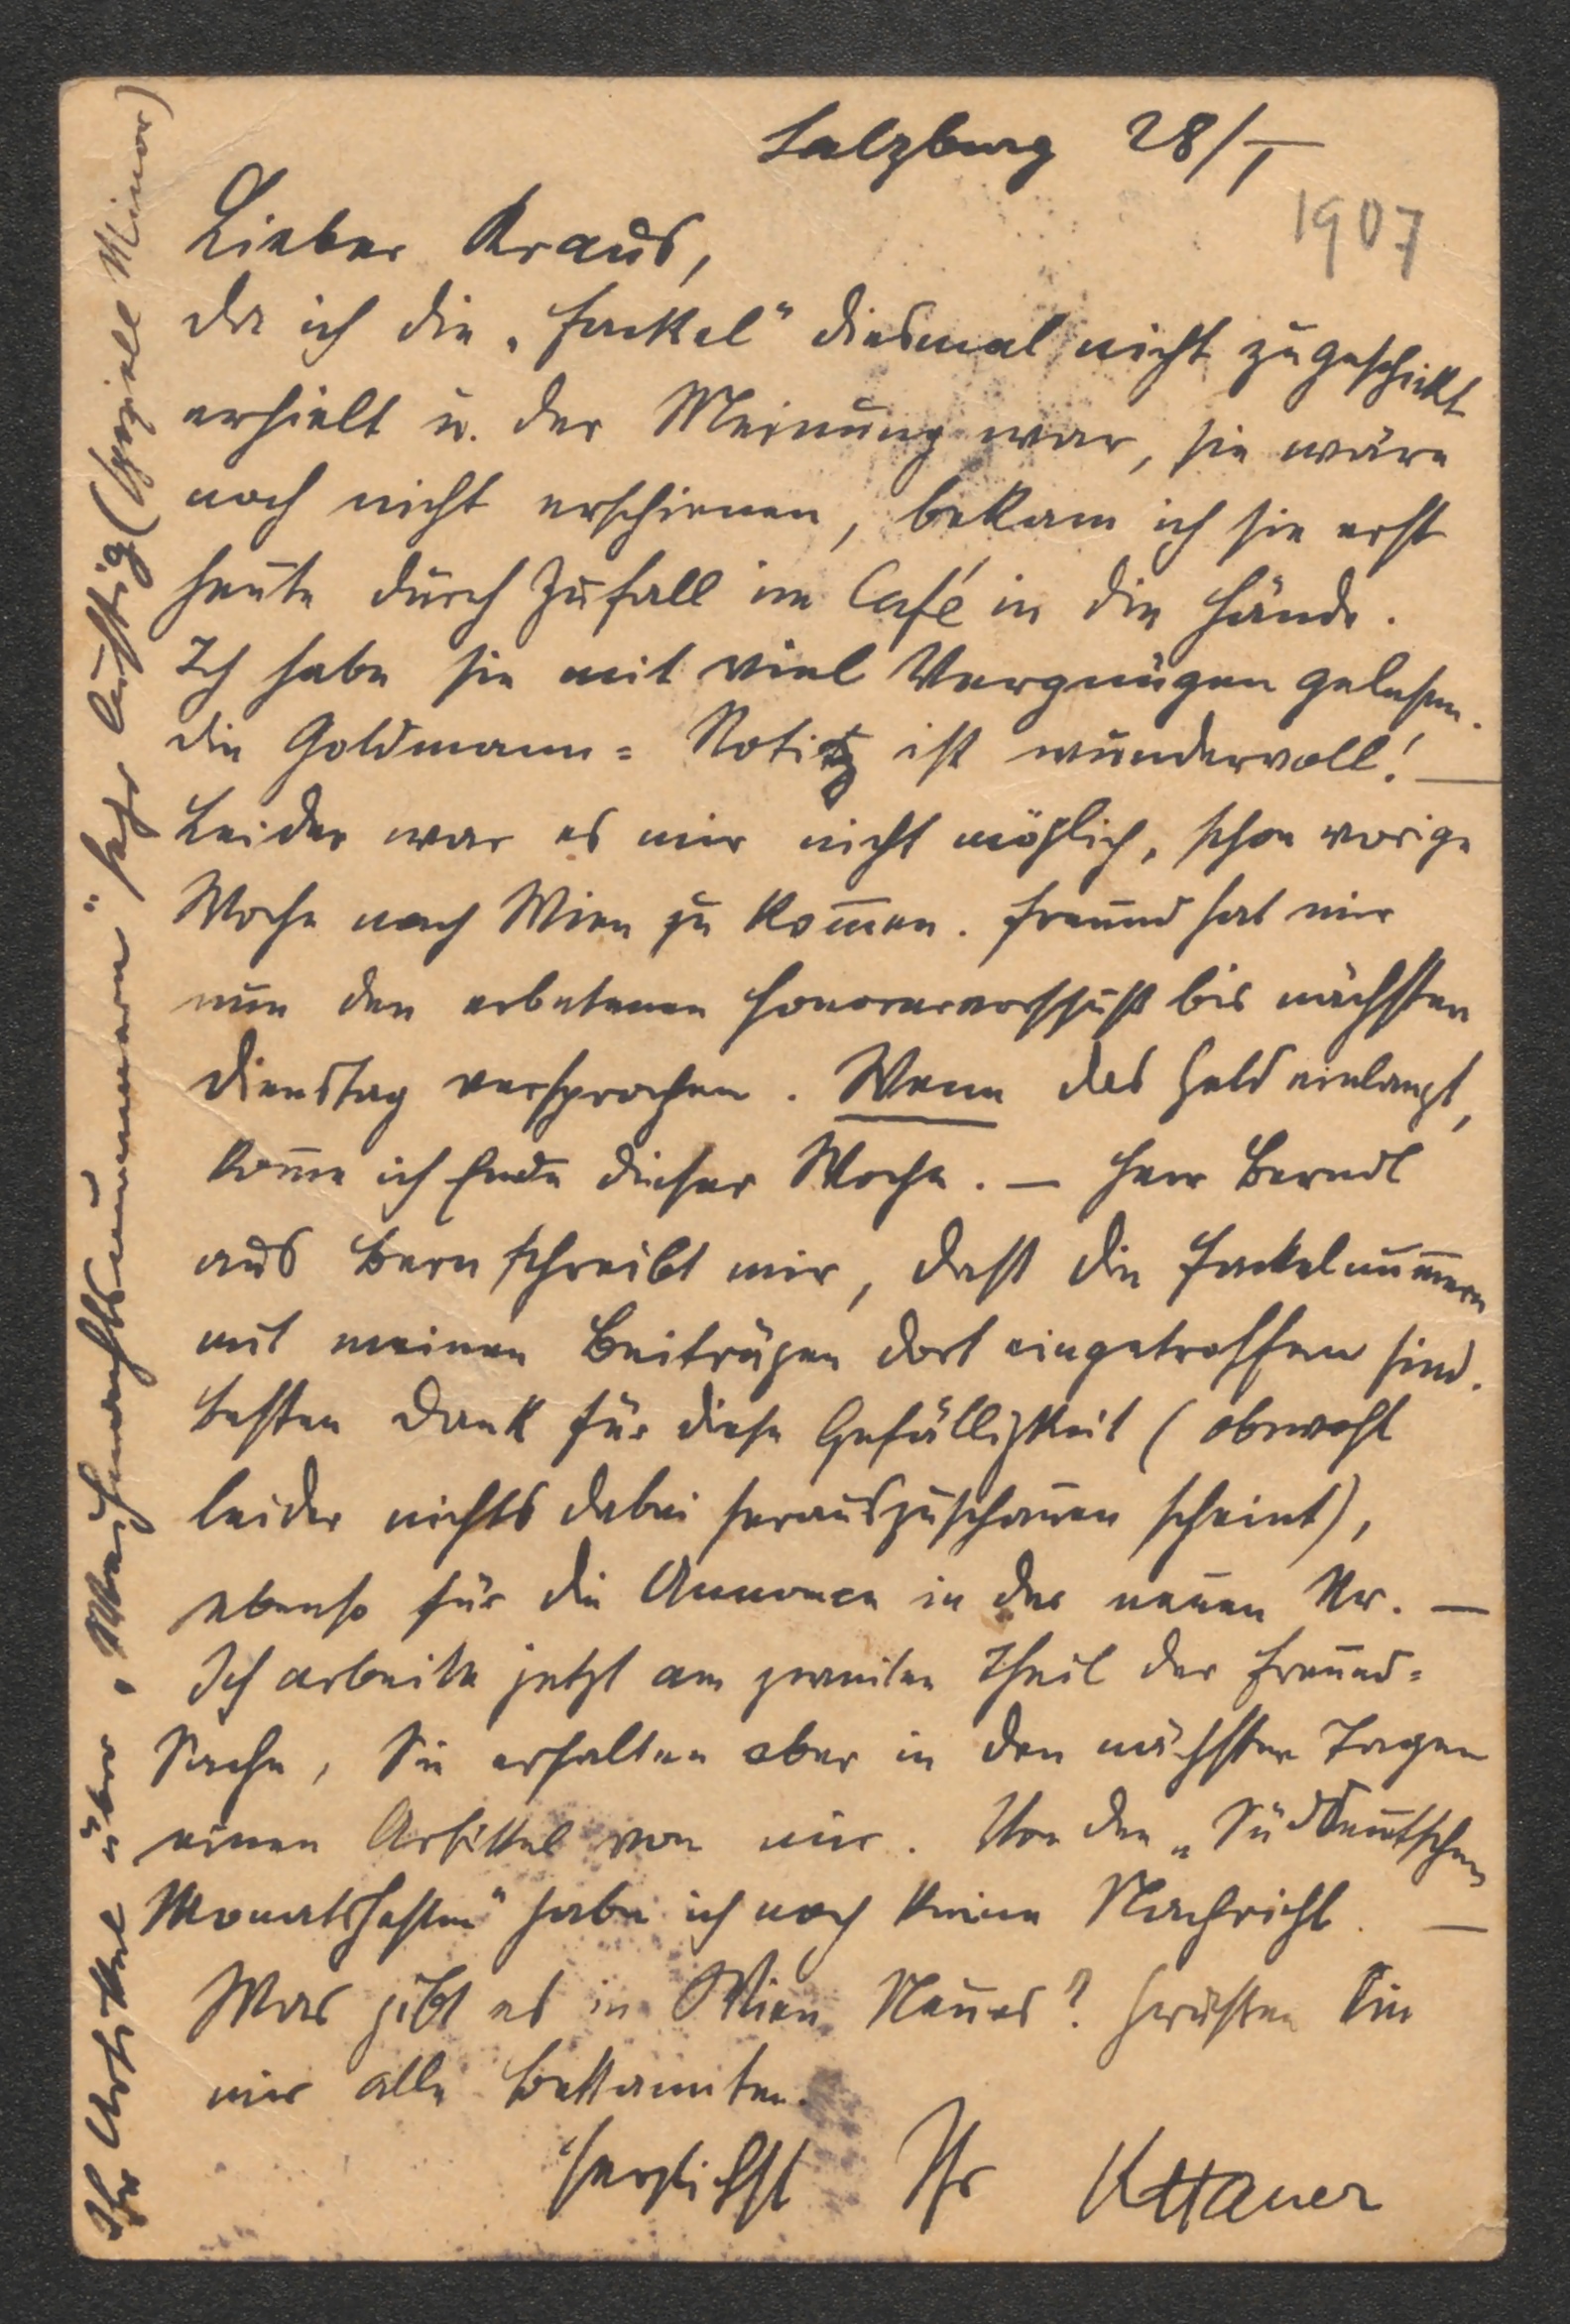 Salzburg 28/I
1907
Lieber Kraus,
da ich die „Fackel“ diesmal nicht zugeschickt
erhielt u. der Meinung war, sie wäre
noch nicht erschienen, bekam ich sie erst
heute durch Zufall im Café in die Hände.
Ich habe sie mit viel Vergnügen gelesen.
Die Goldmann=Notiz ist wundervoll! —
Leider war es mir nicht möglich, schon vorige
Woche nach Wien zu kom̄en. Freund hat mir
nun den erbetenen Honorarvorschuß bis nächsten
Dienstag versprochen. Wenn das Geld einlangt,
kom̄e ich Ende dieser Woche. — Herr Berndl
aus Bern schreibt mir, daß die Fackelnum̄ern
mit meinen Beiträgen dort eingetroffen sind.
Besten Dank für diese Gefälligkeit (obwohl
leider nichts dabei herauszuschauen scheint),
ebenso für die Annonce in der neuen Nr. —
Ich arbeite jetzt am zweiten Theil der Freund=
Sache, Sie erhalten aber in den nächsten Tagen
einen Artikel von mir. Von den „Süddeutschen
Monatsheften“ habe ich noch keine Nachricht. —
Was gibt es in Wien Neues? Grüßen Sie
mir alle Bekannten.
Herzlichst Ihr KHauer
Ihr Artikel über „Weihnachtsnummern“ sehr lustig (speziell Minor)